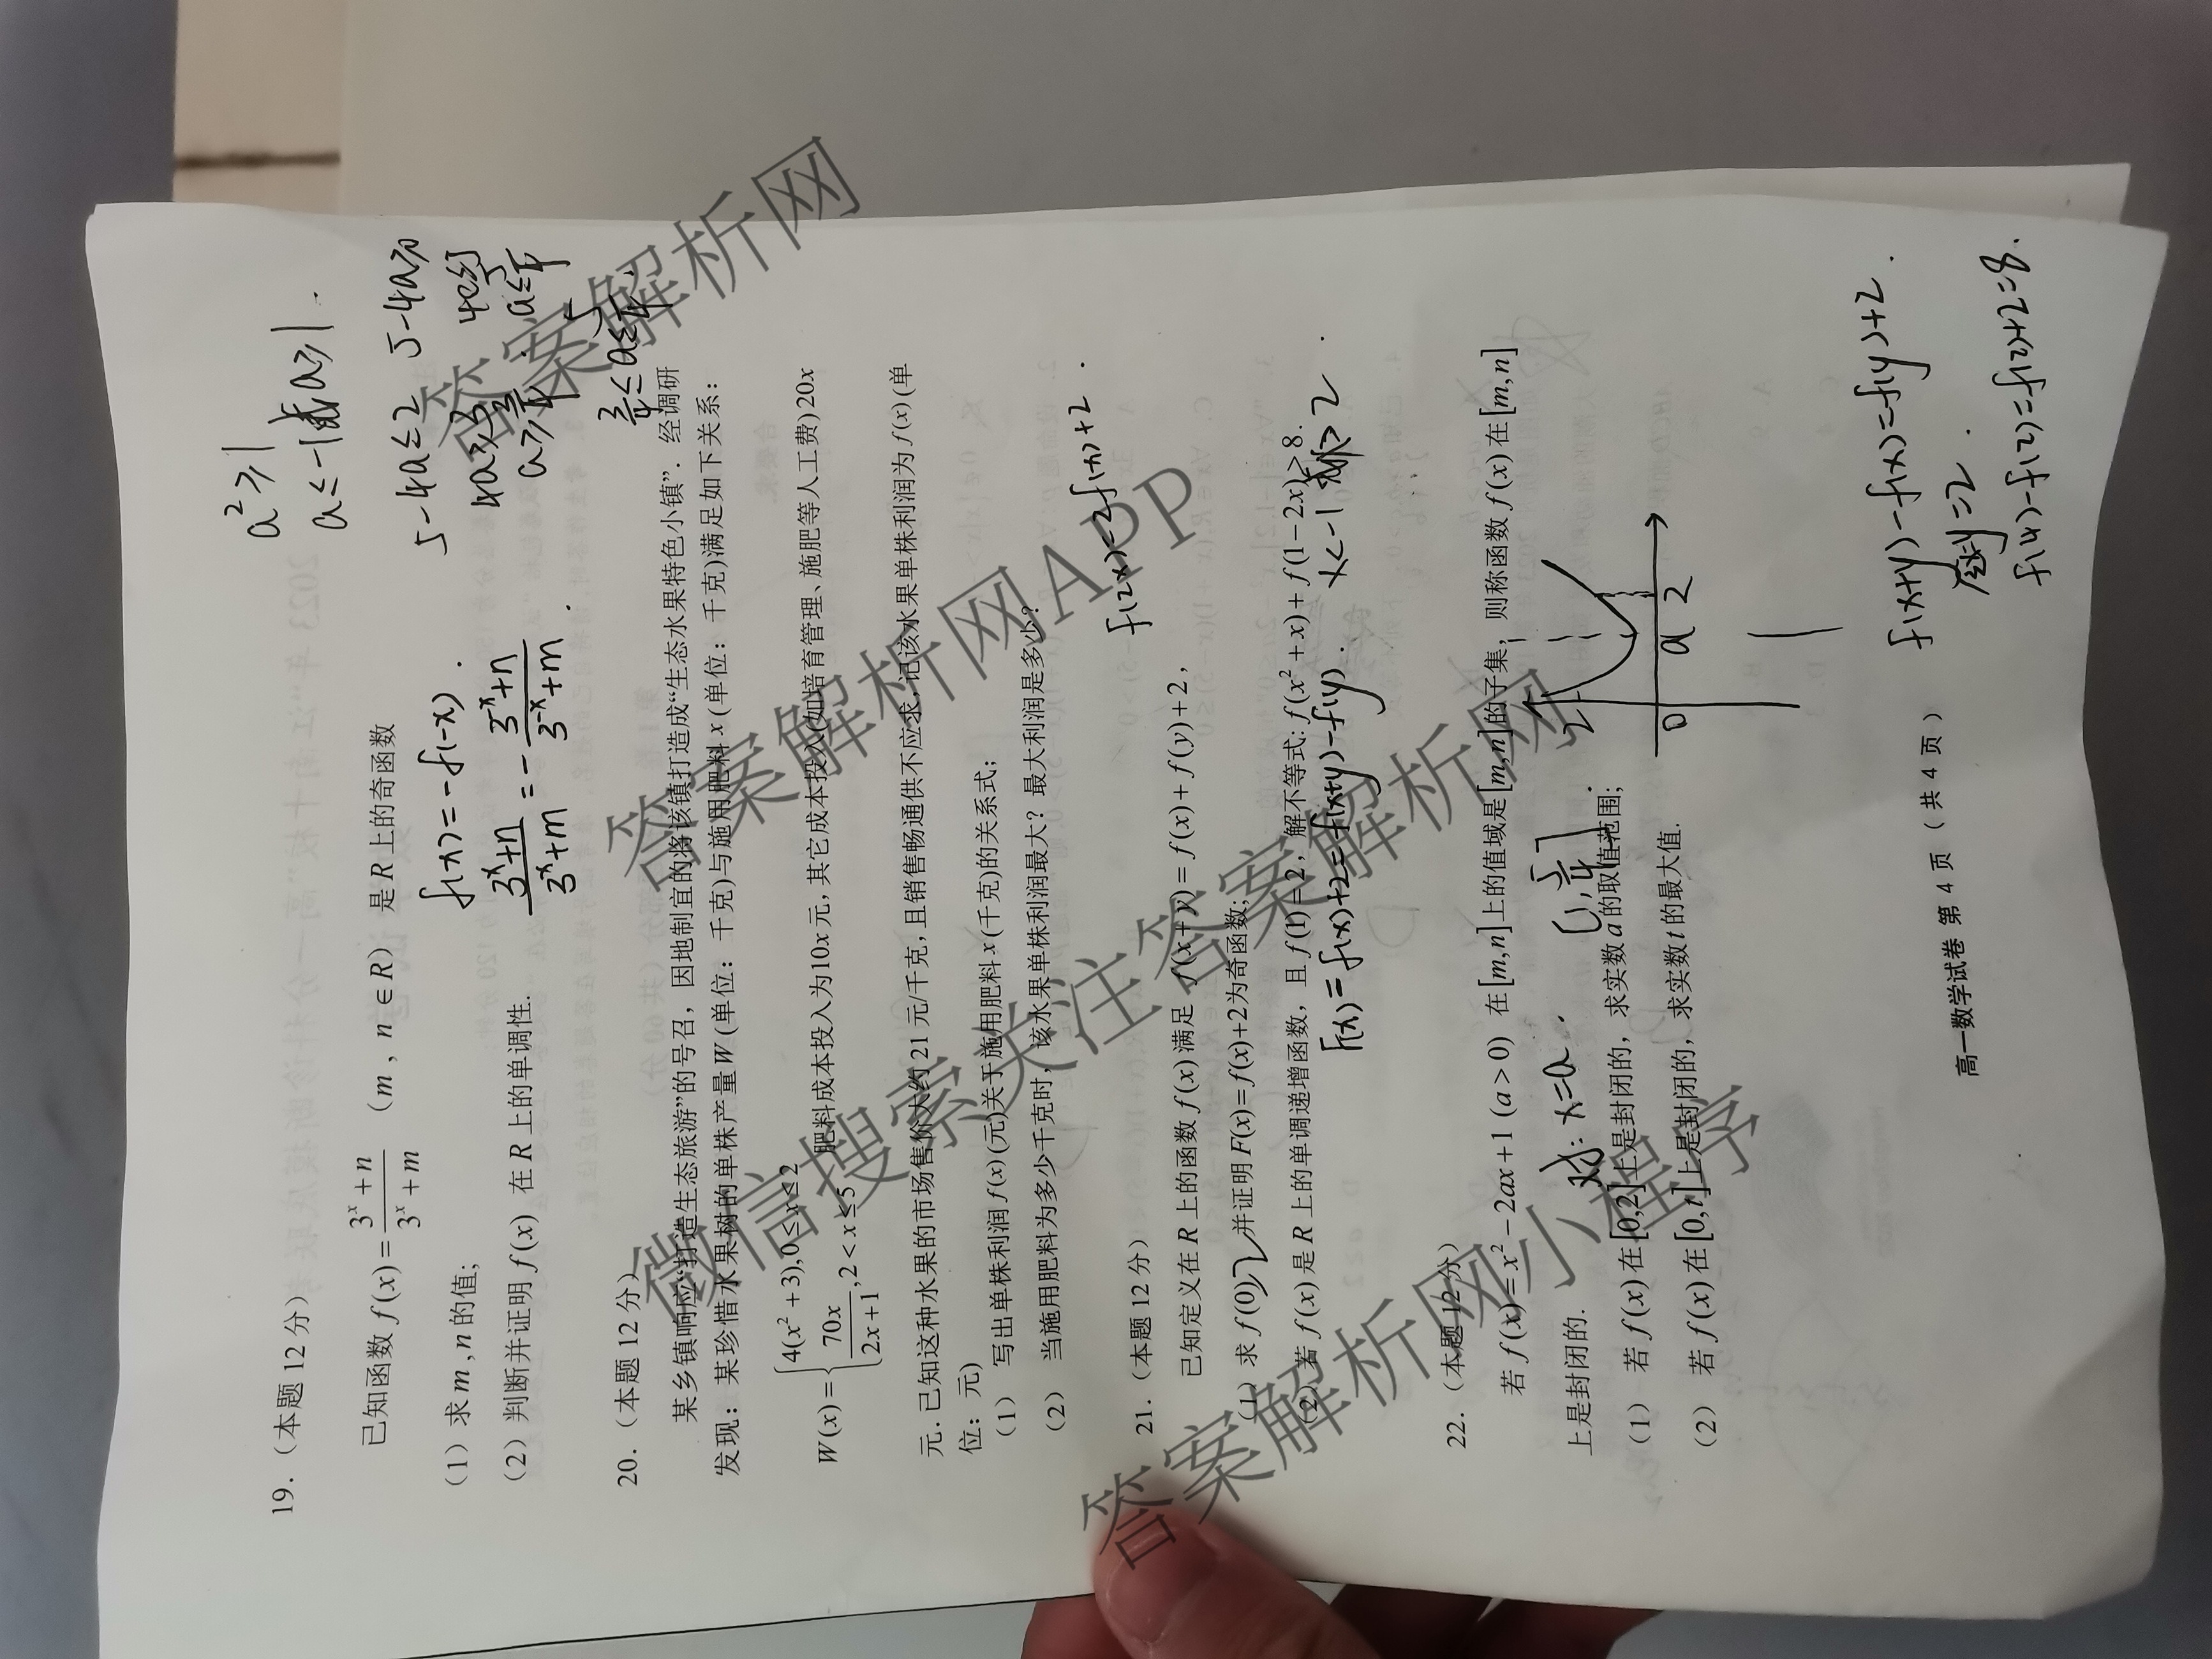 19.（本题 12 分）
已知函数 f(x) = (3^x + n)/(3^x + m) （m，n∈R） 是 R 上的奇函数
（1）求 m,n 的值;
（2）判断并证明 f(x) 在 R 上的单调性.
a² ≥ 1
a ≤ -1 或 a ≥ 1.
5-4a ≤ 2 5-4a ≥ 0
4a ≥ 3 4a ≤ 5
a ≥ 3/4. a ≤ 5/4
3/4 ≤ a ≤ 5/4.
f(x) = -f(-x).
(3^x+n)/(3^x+m) = -(3^-x+n)/(3^-x+m).
20.（本题 12 分）
某乡镇响应“打造生态旅游”的号召，因地制宜的将该镇打造成“生态水果特色小镇”．经调研
发现：某珍惜水果树的单株产量 W (单位：千克)与施用肥料 x (单位：千克)满足如下关系：
W(x) = { 4(x² + 3), 0 ≤ x ≤ 2 ; 70x/(2x+1), 2 < x ≤ 5 肥料成本投入为10x 元，其它成本投入(如培育管理、施肥等人工费) 20x
元.已知这种水果的市场售价大约 21 元/千克，且销售畅通供不应求,记该水果单株利润为 f(x) (单
位：元)
（1） 写出单株利润 f(x) (元)关于施用肥料 x (千克)的关系式；
（2） 当施用肥料为多少千克时，该水果单株利润最大？最大利润是多少？
21.（本题 12 分）
f(2x) = 2f(x)+2.
已知定义在 R 上的函数 f(x) 满足 f(x+y) = f(x) + f(y) + 2，
（1）求 f(0)，并证明 F(x) = f(x)+2 为奇函数;
（2）若 f(x) 是 R 上的单调递增函数，且 f(1) = 2，解不等式: f(x² + x) + f(1-2x) > 8.
x<-1 或 x>2.
F(x) = f(x)+2 = f(x+y)-f(y).
22.（本题 12 分）
若 f(x) = x² - 2ax + 1 (a > 0) 在 [m,n] 上的值域是 [m,n] 的子集，则称函数 f(x) 在 [m,n]
上是封闭的.
对: x=a.
[1, 5/4].
（1） 若 f(x) 在 [0,2] 上是封闭的，求实数 a 的取值范围;
（2） 若 f(x) 在 [0,t] 上是封闭的，求实数 t 的最大值.
2
0 a 2
f(x+y)-f(x)=f(y)+2.
y=2.
f(4)-f(2)=f(2)+2=8.
高一数学试卷 第 4 页 （ 共 4 页 ）
答案解析网
答案解析网APP
微信搜索关注答案解析网
答案解析网小程序